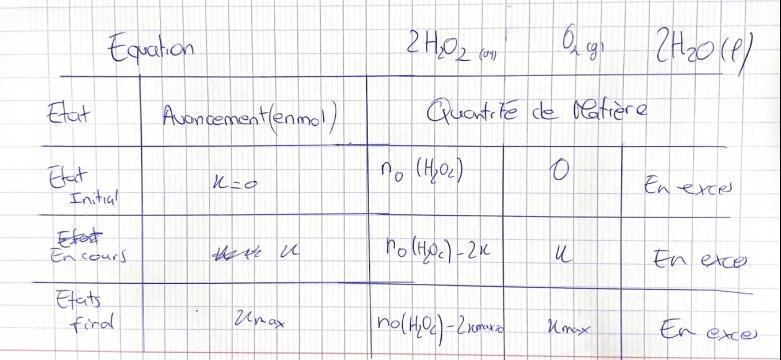 Equation 2H₂O₂ (aq) O₂ (g) 2H₂O (l)
Etat Avancement (en mol) Quantité de Matière
Etat Initial x=0 n₀ (H₂O₂) 0 En exces
En cours x n₀ (H₂O₂) - 2x x En exce
Etats final xmax n₀ (H₂O₂) - 2xmax xmax En exces